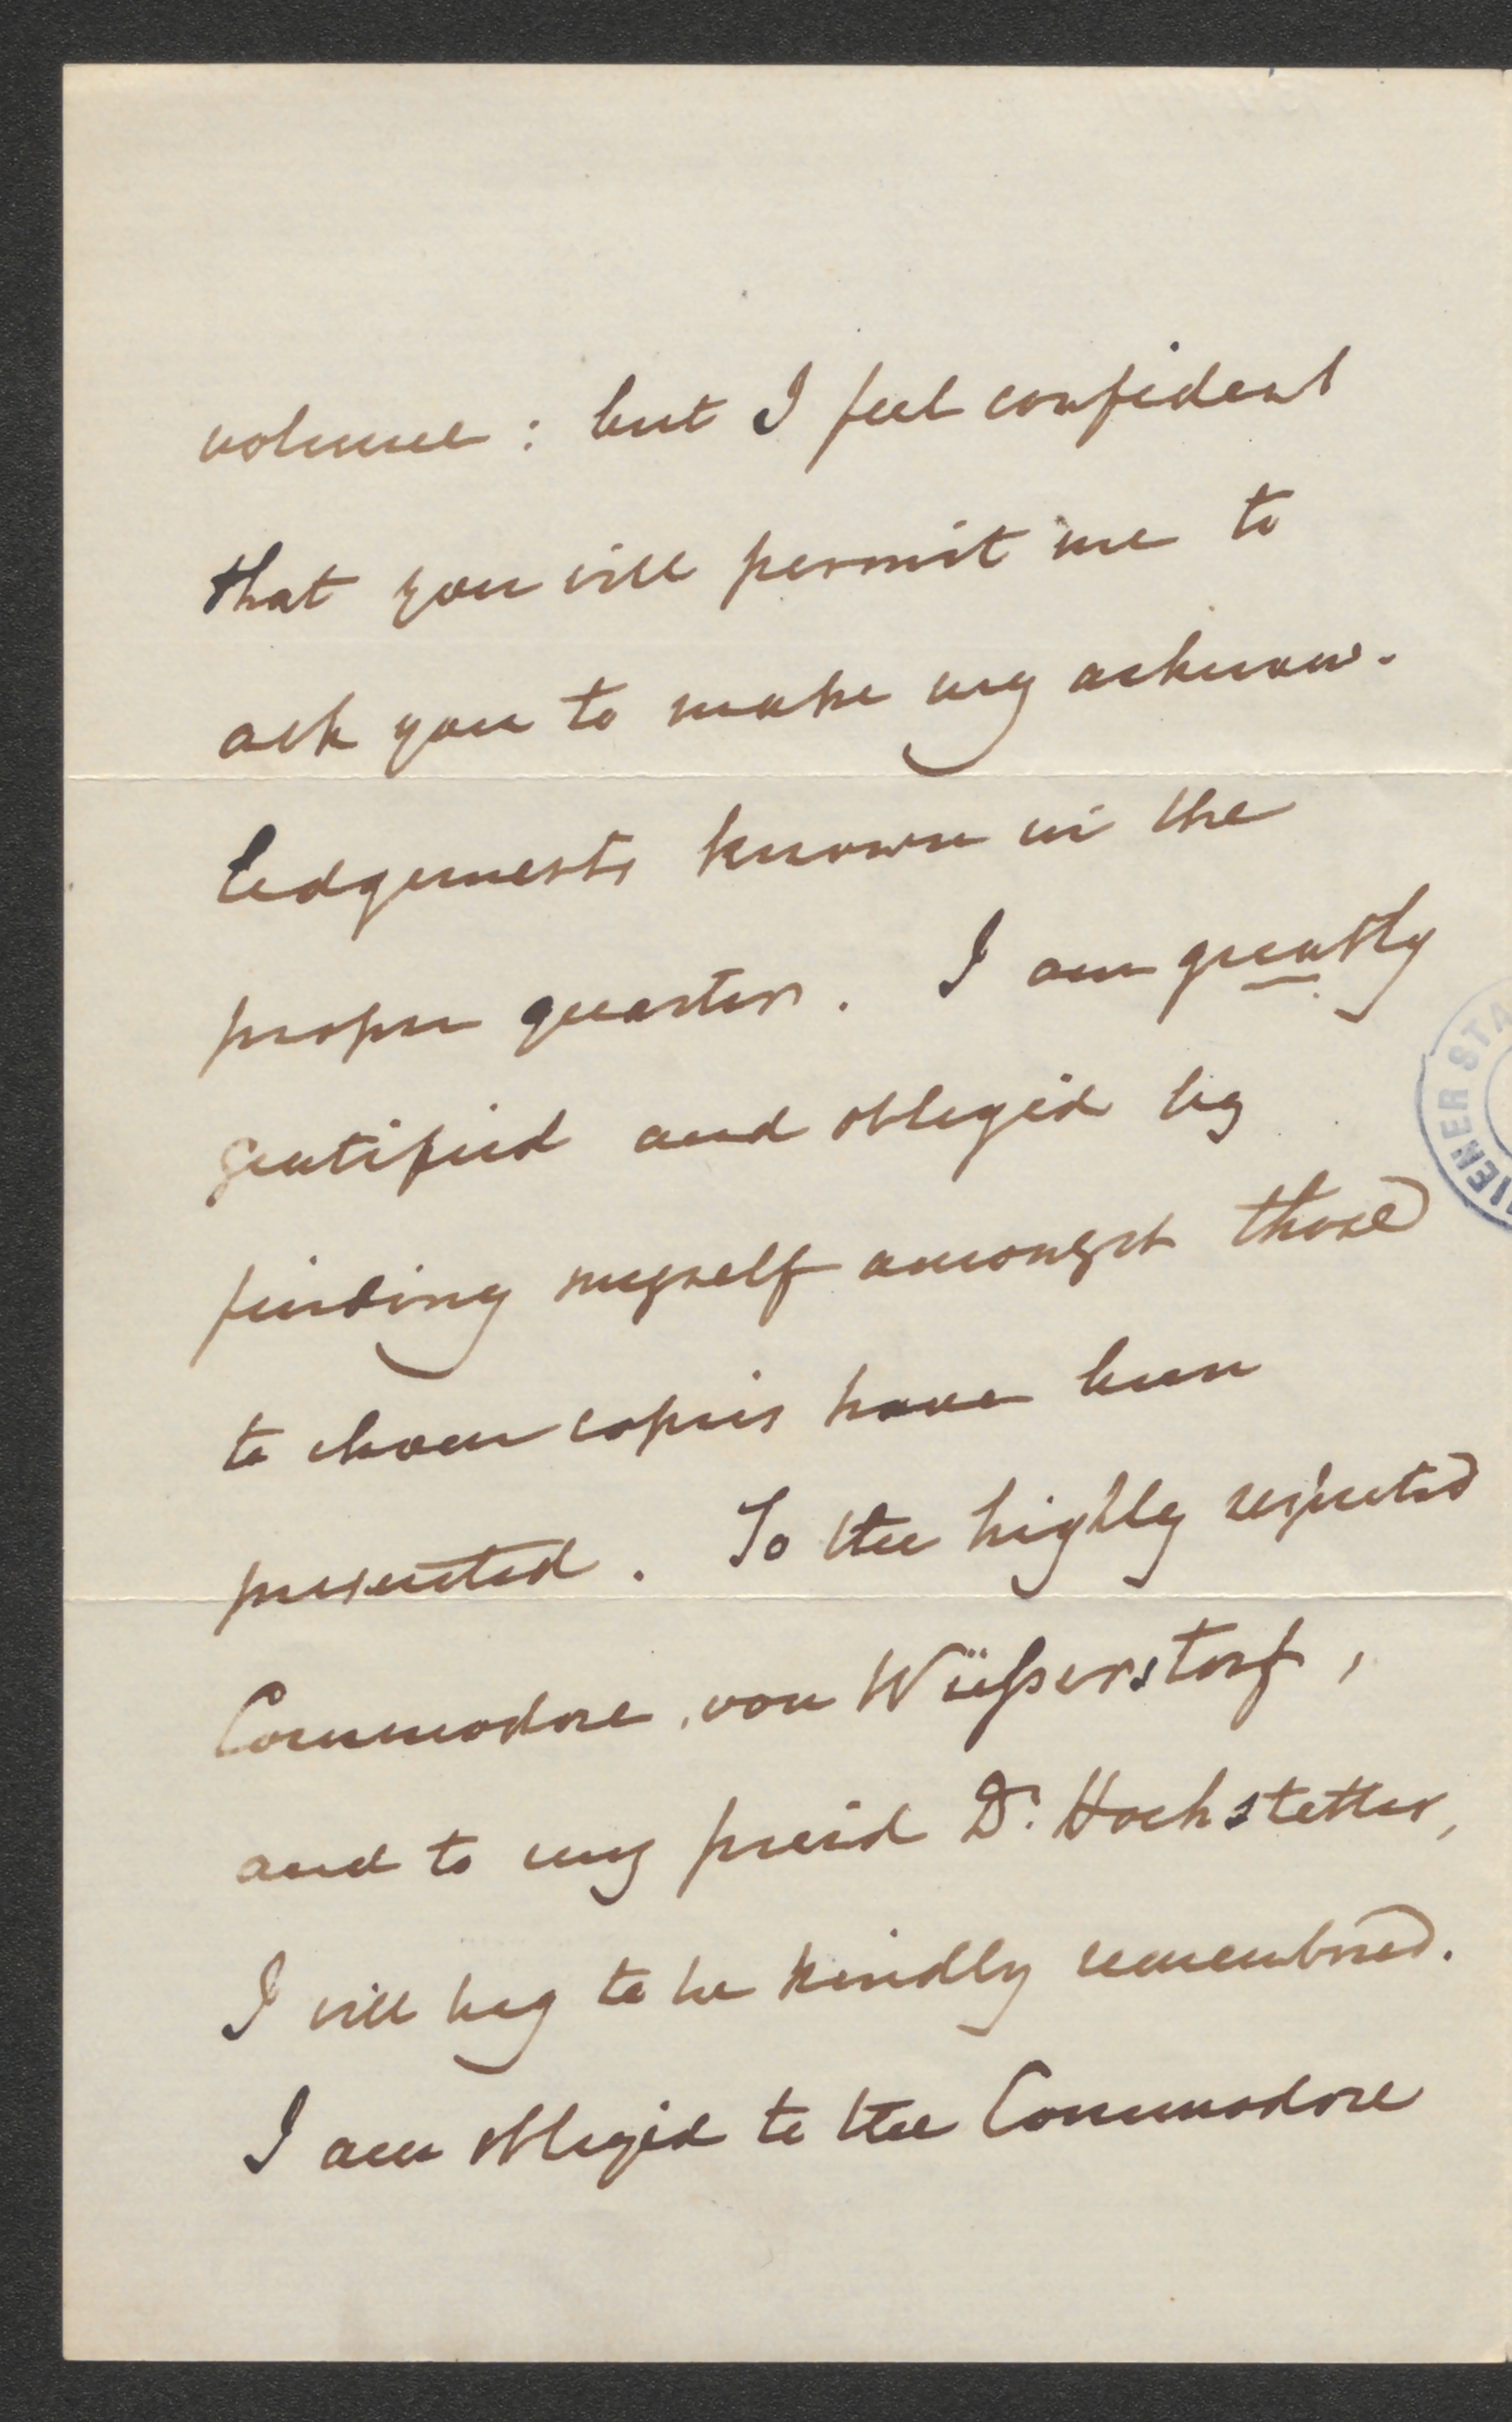 volume: but I feel confident
that you will permit me to
ask you to make my acknow-
ledgements known in the
proper quarters. I am greatly
gratified and obliged by
finding myself amongst those
to whom copies have been
presented. To the highly respected
Commodore, von Wüßerstorf,
and to my friend Dr. Hochstetter,
I will beg to be kindly remembered.
I am obliged to the Commodore
IENER STA